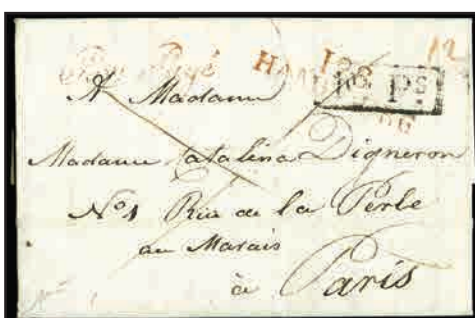 Port Payé
128
HAMBOURG
12
R. 6. Ps.
A Madame
Madame Catalina Digneron
No 1 Rue de la Perle
au Marais
à Paris